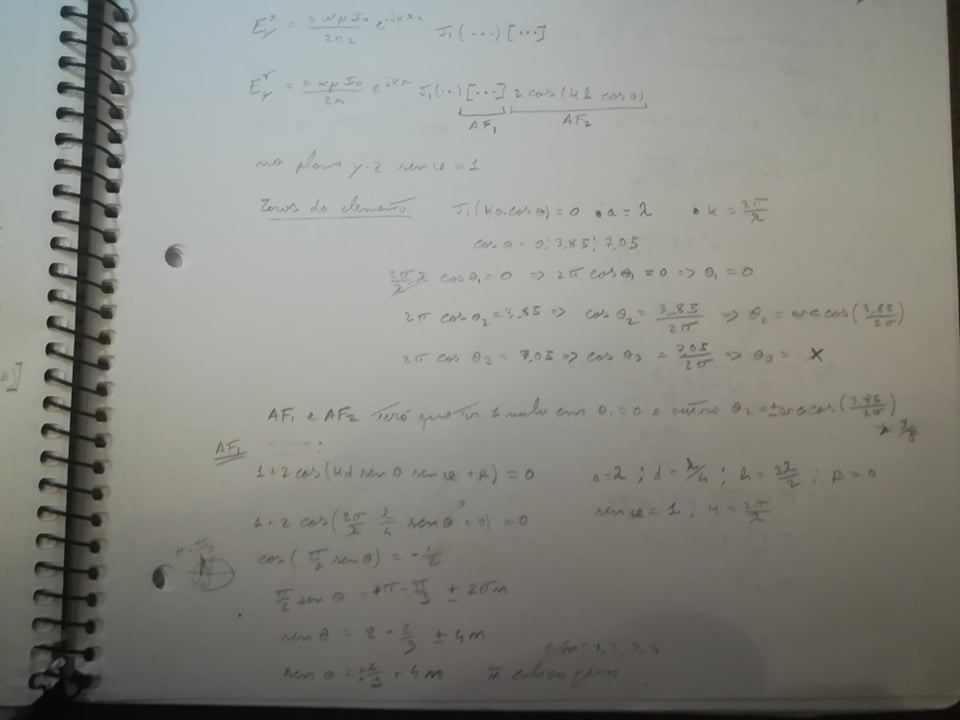 E_ψ^r = (a w μ I₀ / 2r₂) e^-jkr₂ J₁(...)[...]
E_ψ^T = (a w μ I₀ / 2r) e^-jkr J₁(..)[...] 2 cos(kh cos θ)
AF₁ AF₂
no plano y-z sen φ = 1
Zeros do elemento J₁(ka.cos θ) = 0 • a = λ • k = 2π/λ
cos θ = 0; 3,85; 7,05
2π/λ λ cos θ₁ = 0 => 2π cos θ₁ = 0 => θ₁ = 0
2π cos θ₂ = 3,85 => cos θ₂ = 3,85/2π => θ₂ = arc cos(3,85/2π)
2π cos θ₃ = 7,05 => cos θ₃ = 7,05/2π => θ₃ = x
AF₁ e AF₂ Terá que ter 1 nulo em θ₁ = 0 e outro θ₂ = ± arc cos(3,85/2π)
AF₁ :
1 + 2 cos(kd sen θ sen φ + β) = 0 a = λ ; d = λ/4 ; h = 3λ/2 ; β = 0
1 + 2 cos(2π/λ λ/4 sen θ + 0) = 0 sen φ = 1 ; k = 2π/λ
cos(π/2 sen θ) = -1/2
π/2 sen θ = π - π/3 ± 2πn
sen θ = 2 - 2/3 ± 4n
sen θ = 4/3 + 4n